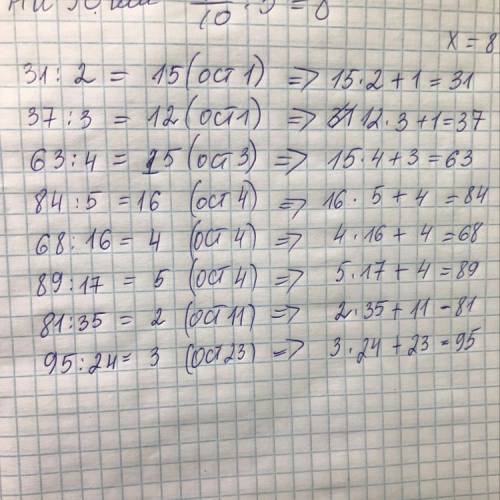 10 · 5 = 8
x = 8
31 : 2 = 15 (ост 1) => 15 · 2 + 1 = 31
37 : 3 = 12 (ост 1) => 12 · 3 + 1 = 37
63 : 4 = 15 (ост 3) => 15 · 4 + 3 = 63
84 : 5 = 16 (ост 4) => 16 · 5 + 4 = 84
68 : 16 = 4 (ост 4) => 4 · 16 + 4 = 68
89 : 17 = 5 (ост 4) => 5 · 17 + 4 = 89
81 : 35 = 2 (ост 11) => 2 · 35 + 11 = 81
95 : 24 = 3 (ост 23) => 3 · 24 + 23 = 95